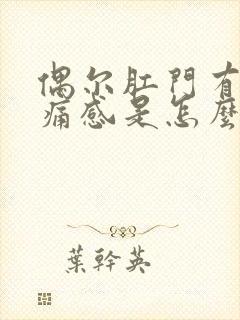 偶尔肛門有
痛感是怎麼
葉幹英